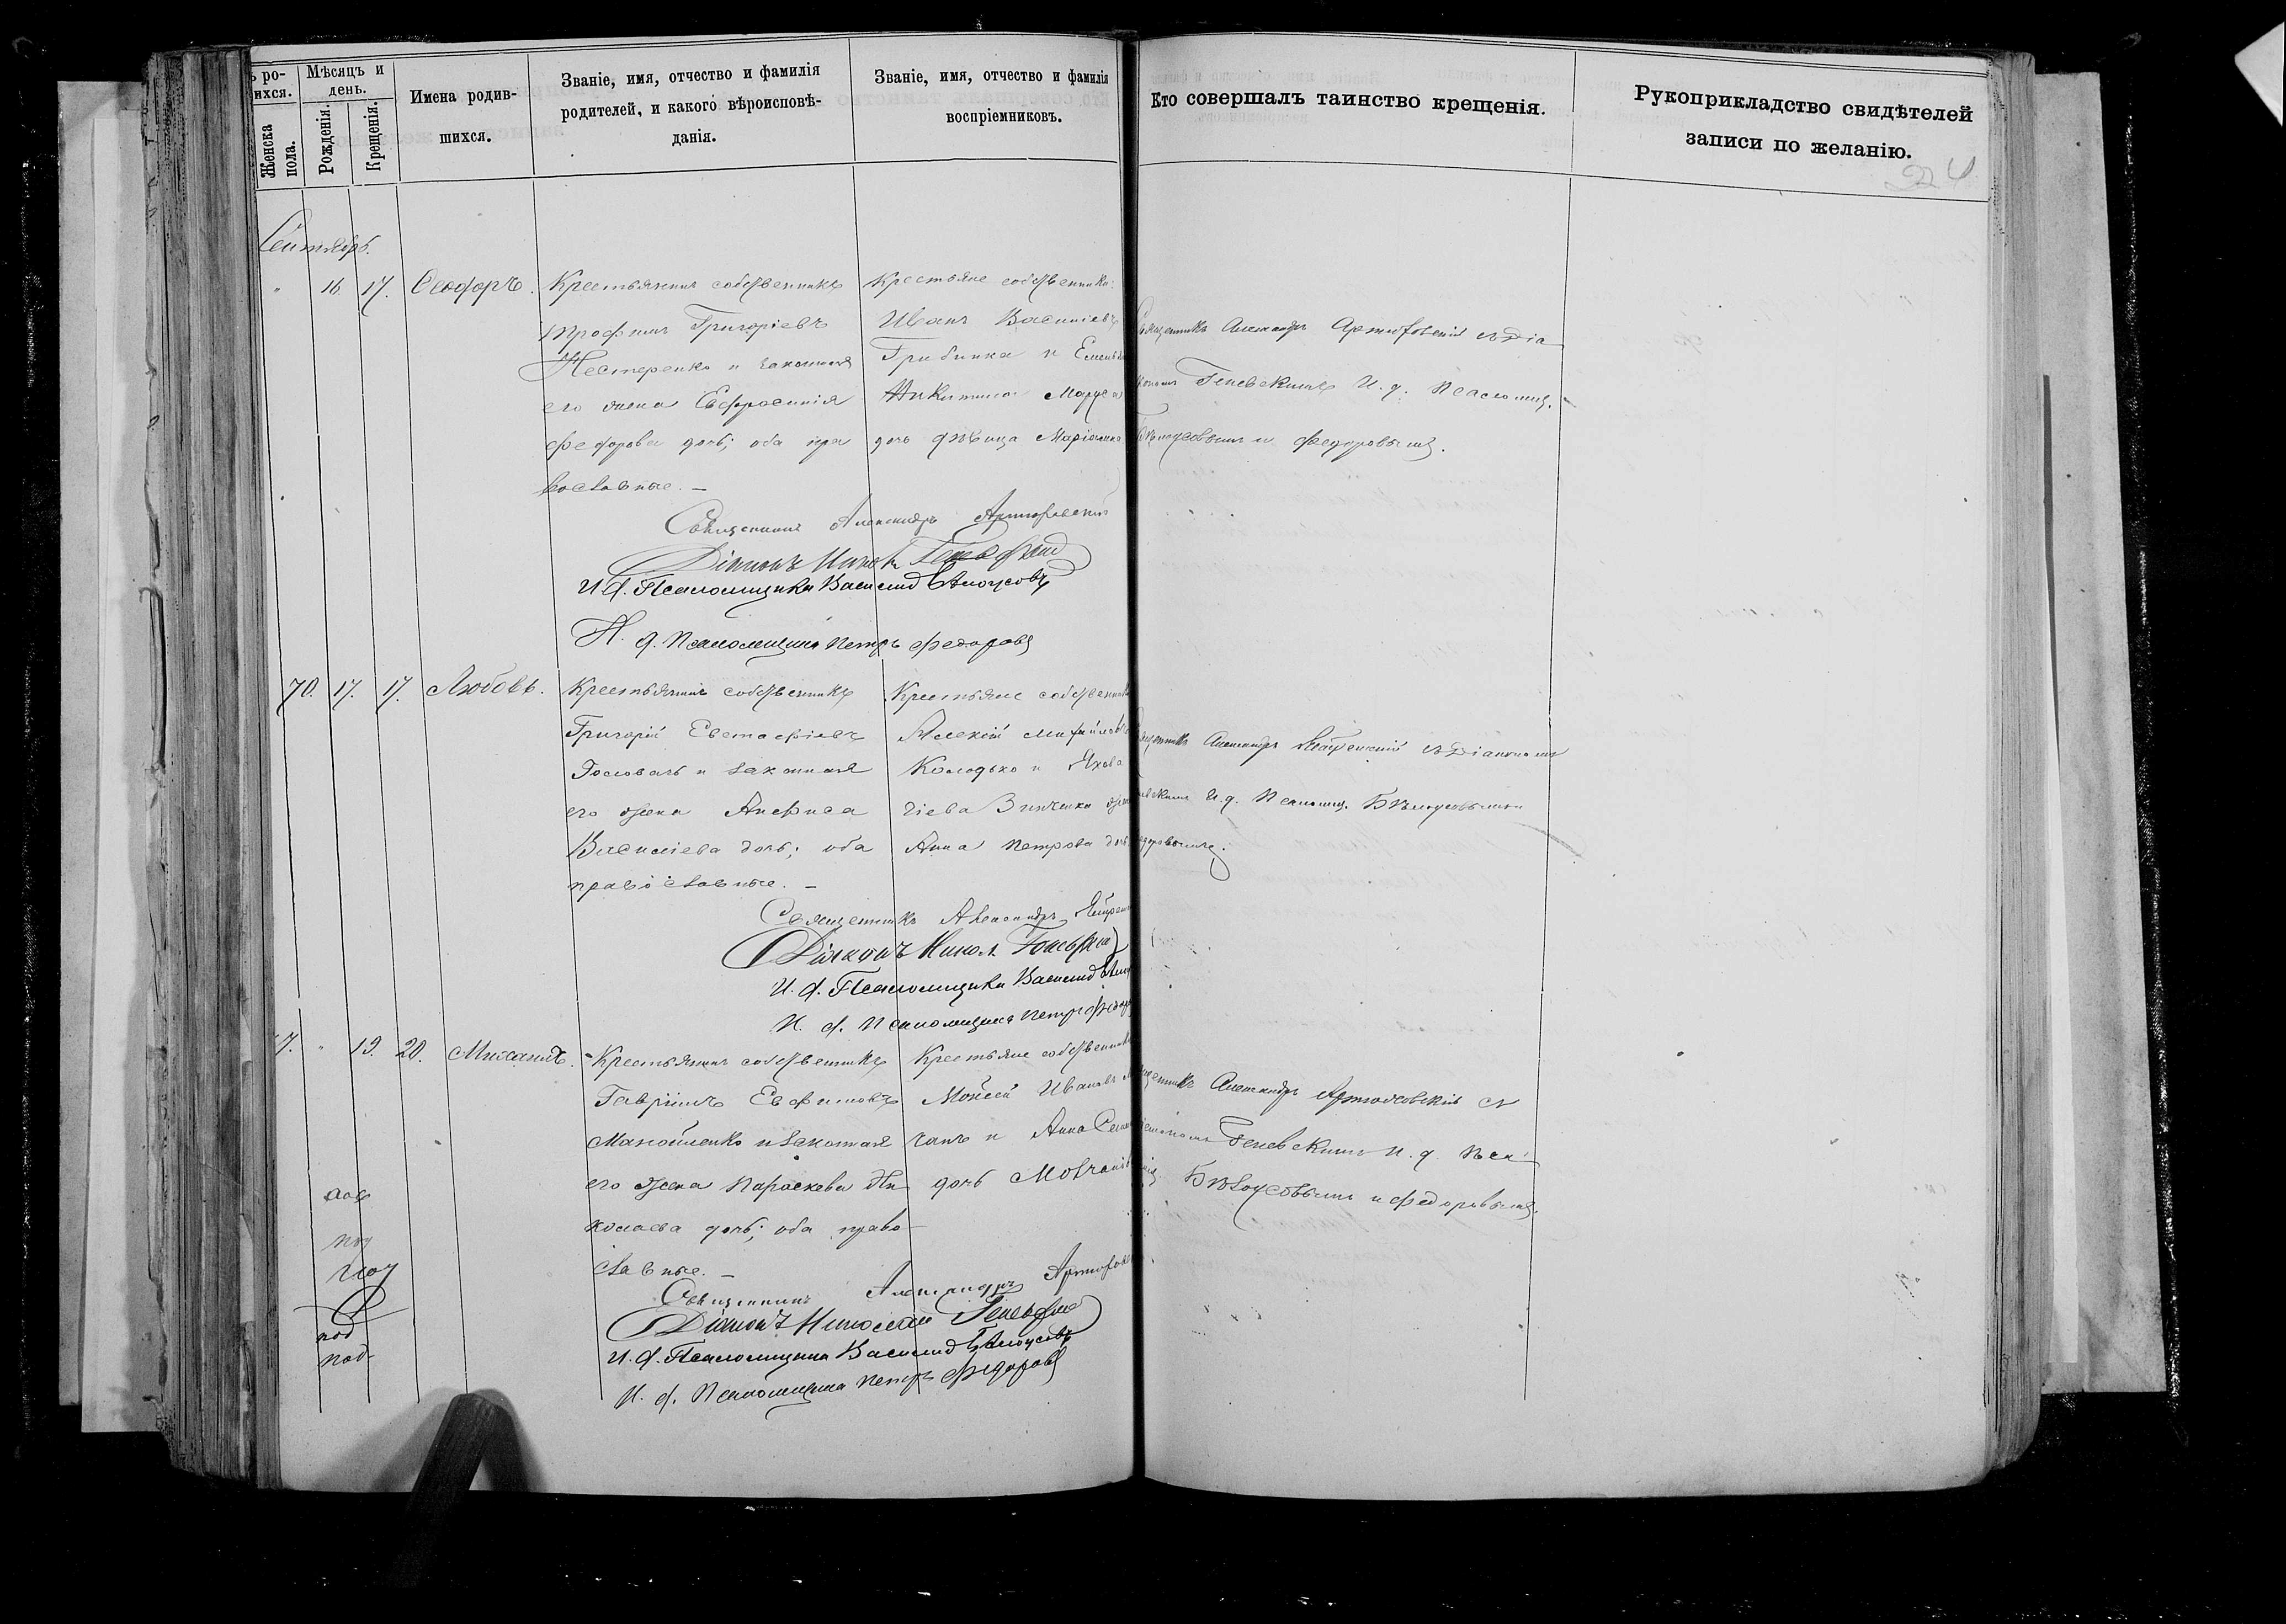 ъ ро-
ихся.
Женска
пола.
Мѣсяцъ и
день.
Рожденія.
Крещенія.
Имена родив-
шихся.
Званіе, имя, отчество и фамилія
родителей, и какого вѣроисповѣ-
данія.
Званіе, имя, отчество и фамилія
воспріемниковъ.
Кто совершалъ таинство крещенія.
Рукоприкладство свидѣтелей
записи по желанію.
Сентябрь.
" 16. 17. Ѳеодоръ.
Крестьянинъ собственникъ
Трофимъ Григоріевъ
Нестеренко и законная
его жена Евфросинія
Федорова дочь; оба пра
вославные. —
Крестьяне собственники:
Иванъ Василіевъ
Грибинка и
Никитина
дочь дѣвица
Священникъ Александръ Артюховскій съ Діа
кономъ Геневскимъ И. д. Псаломщ.
Бѣлоусовымъ и Федоровымъ.
Священникъ Александръ Артюховскій
Діаконъ Геневскій
И. д. Псаломщика Василій Бѣлоусовъ
И. д. Псаломщика Петръ Федоровъ
70. 17. 17. Любовь.
Крестьянинъ собственникъ
Григорій Евстафіевъ
Головачъ и законная
его жена Анфиса
Василіева дочь; оба
православные. —
Крестьяне собственники
Алексій Михайловъ
Колодько и
Зинченка
Анна Петрова дочь
Александръ съ Діакономъ
И. д. Псаломщ. Бѣлоусовымъ и
Священникъ Александръ
Діаконъ Никол. Геневскій
И. д. Псаломщика Василій
И. д. Псаломщика Петръ Федор
7. " 19. 20. Михаилъ.
Крестьянинъ собственникъ
Гавріилъ Евфимовъ
Манойленко и законная
его жена Параскева Ни
колаева дочь; оба право-
славные. —
Крестьяне собственники
Мойсей Ивановъ
чанъ и Анна
дочь
Александръ Артюховскій съ
Геневскимъ И. д. Пса
Бѣлоусовымъ и Федоровымъ.
Священникъ Александръ Артюховск
Діаконъ Николай Геневскій
И. д. Псаломщика Василій Бѣлоусовъ
И. д. Псаломщика Петръ Федоровъ